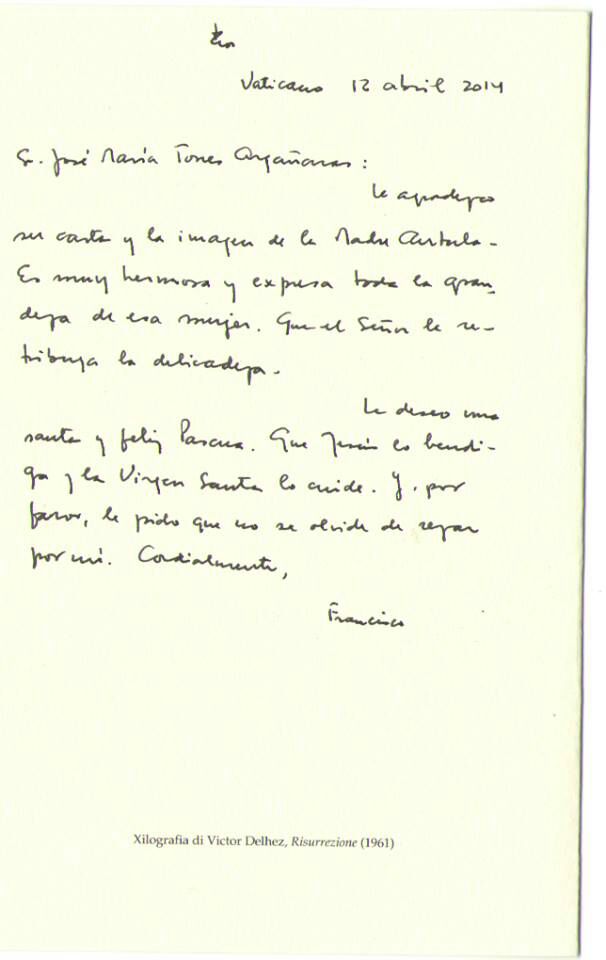 Vaticano 12 abril 2014
Sr. José María Torres Argañaras:
Le agradezco
su carta y la imagen de la Madre Antula.
Es muy hermosa y expresa toda la gran-
deza de esa mujer. Que el Señor le re-
tribuya la delicadeza.
Le deseo una
santa y feliz Pascua. Que Jesús lo bendi-
ga y la Virgen Santa lo cuide. Y, por
favor, le pido que no se olvide de rezar
por mí. Cordialmente,
Francisco
Xilografia di Victor Delhez, Risurrezione (1961)